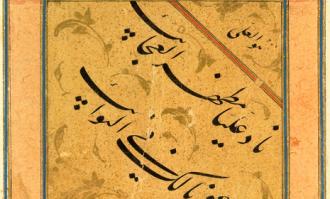 هو العلی
ناد علیا مظهر العجائب
عونا لک فی النوائب